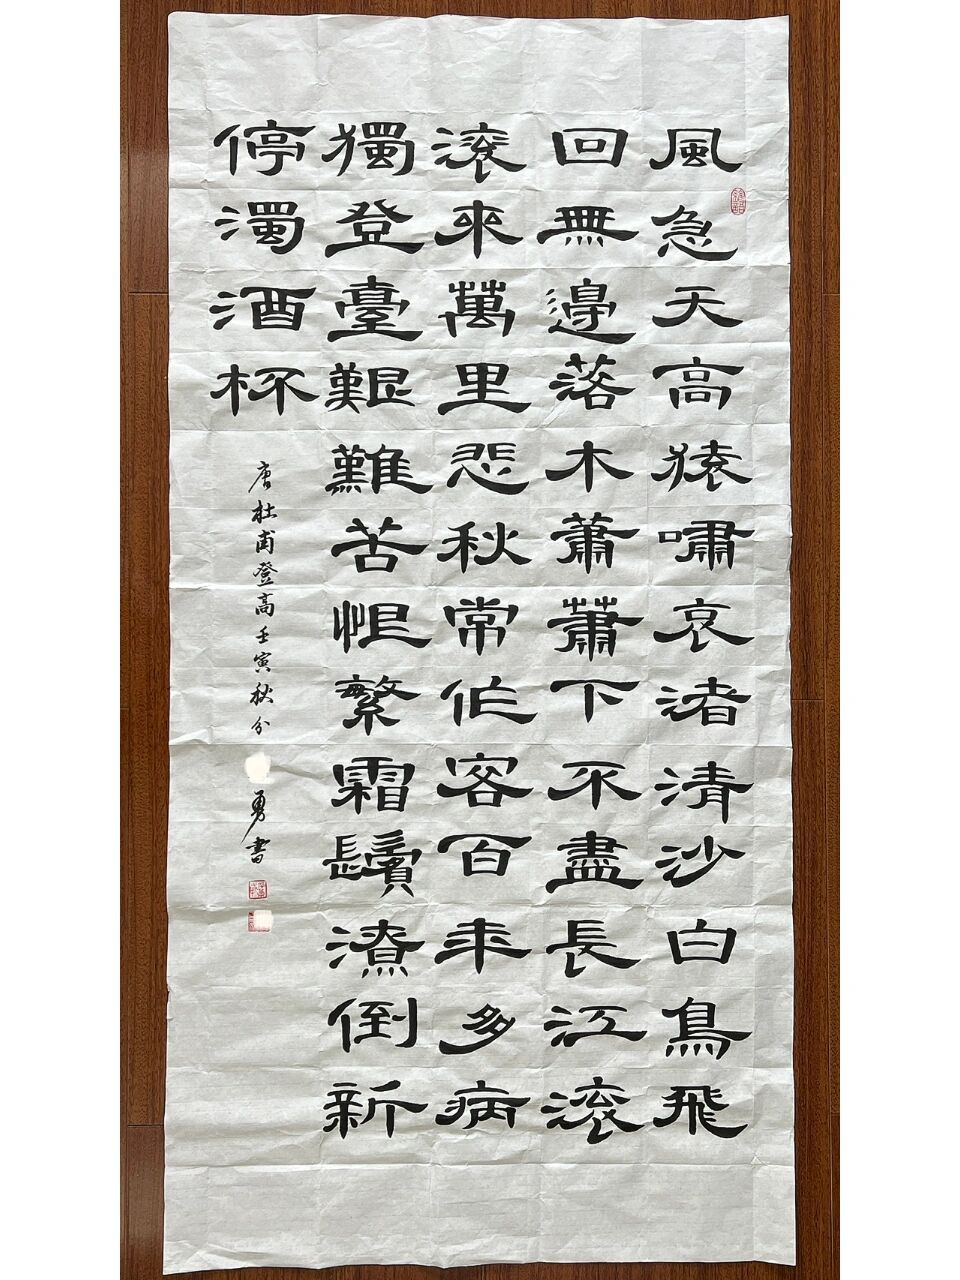 風急天高猿嘯哀渚清沙白鳥飛
回無邊落木蕭蕭下不盡長江滾
滾來萬里悲秋常作客百年多病
獨登臺艱難苦恨繁霜鬢潦倒新
停濁酒杯
唐杜甫登高壬寅秋分
勇書